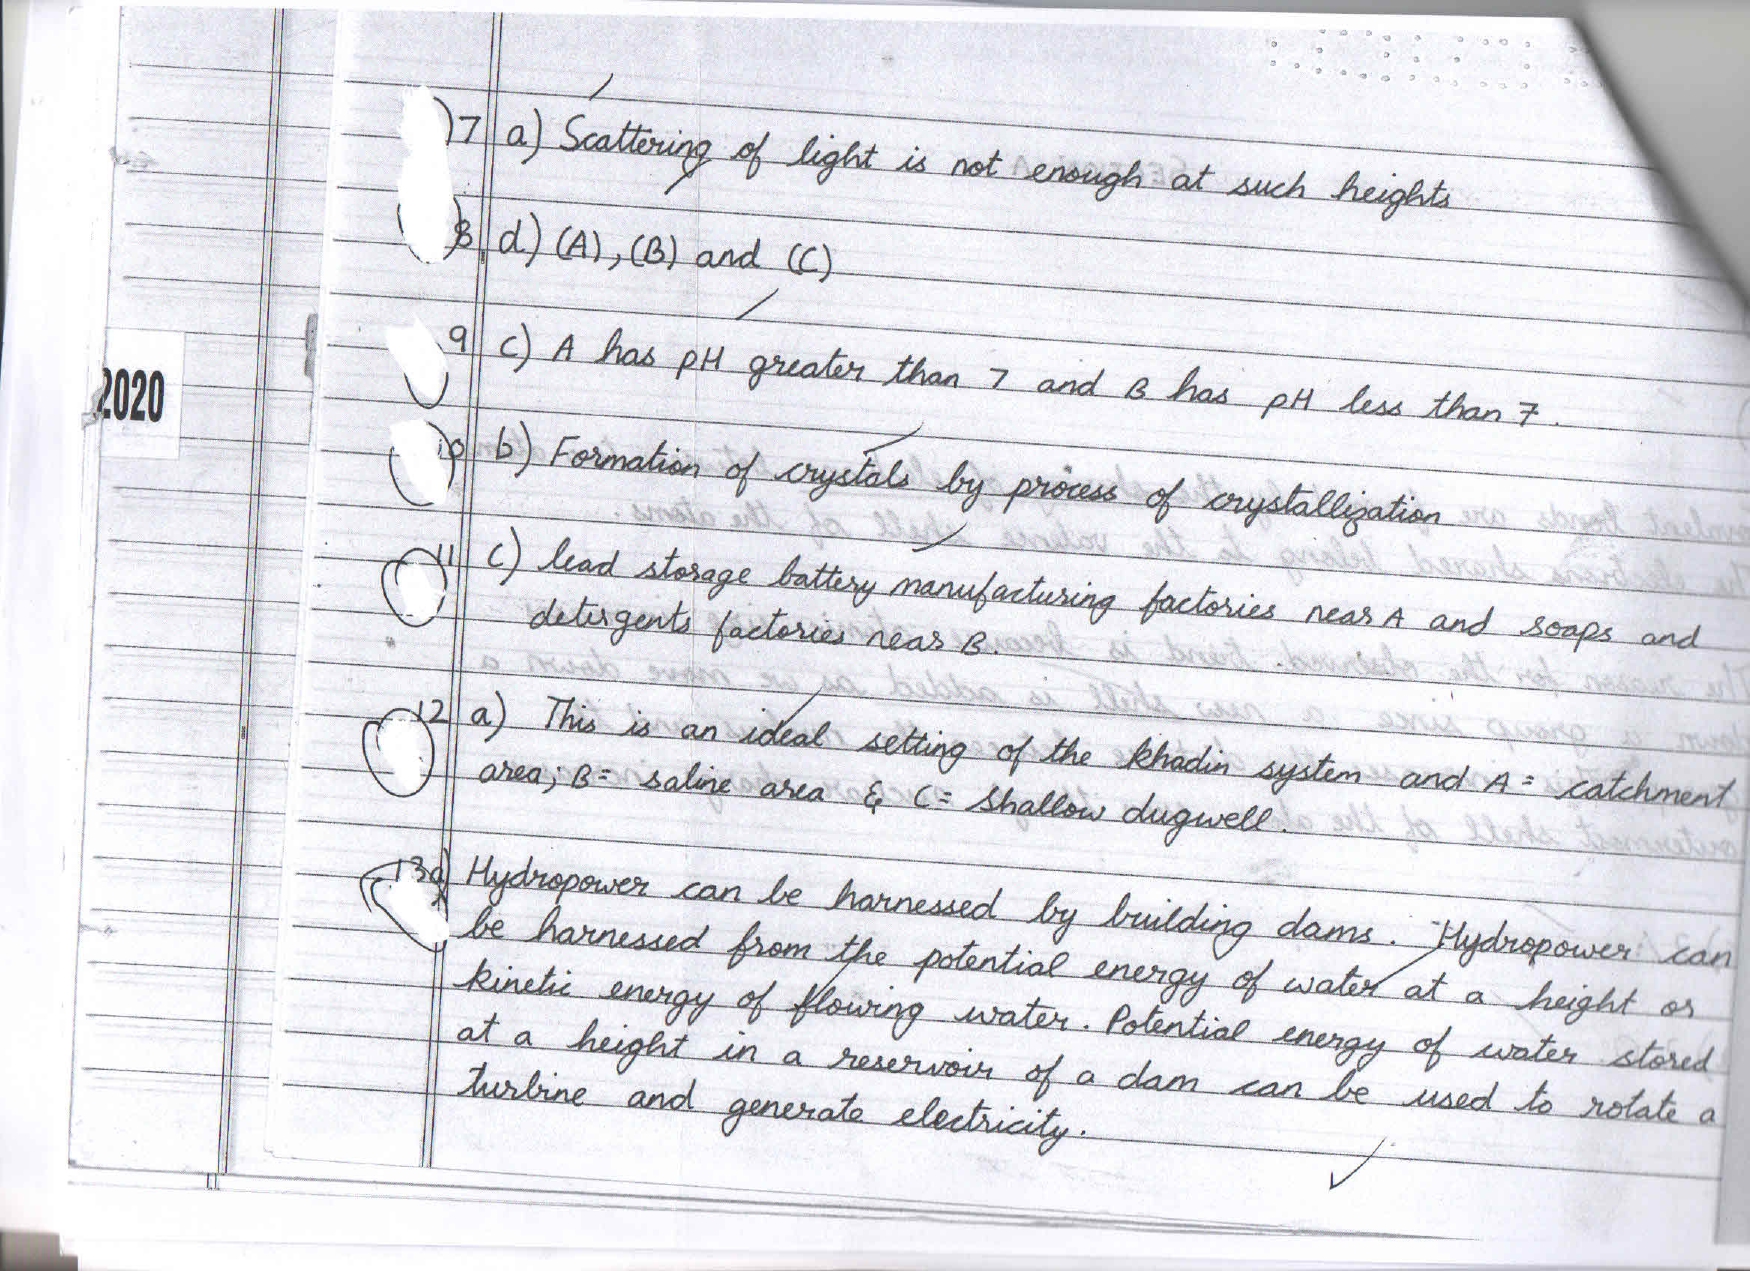 7 a) Scattering of light is not enough at such heights
8 d) (A), (B) and (C)
9 c) A has pH greater than 7 and B has pH less than 7.
2020
10 b) Formation of crystals by process of crystallization
11 c) lead storage battery manufacturing factories near A and soaps and
detergents factories near B.
12 a) This is an ideal setting of the khadin system and A = catchment
area; B = saline area & C = Shallow dugwell.
13a) Hydropower can be harnessed by building dams. Hydropower can
be harnessed from the potential energy of water at a height or
kinetic energy of flowing water. Potential energy of water stored
at a height in a reservoir of a dam can be used to rotate a
turbine and generate electricity.